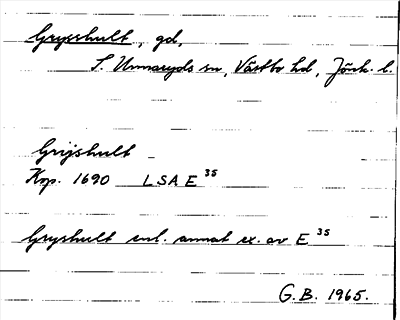 Grysshult, gd,
S. Unnaryds sn, Västbo hd, Jönk. l.
Grijshult
Kop. 1690 LSA E 35
Gryshult enl. annat ex. av E 35
G.B. 1965.